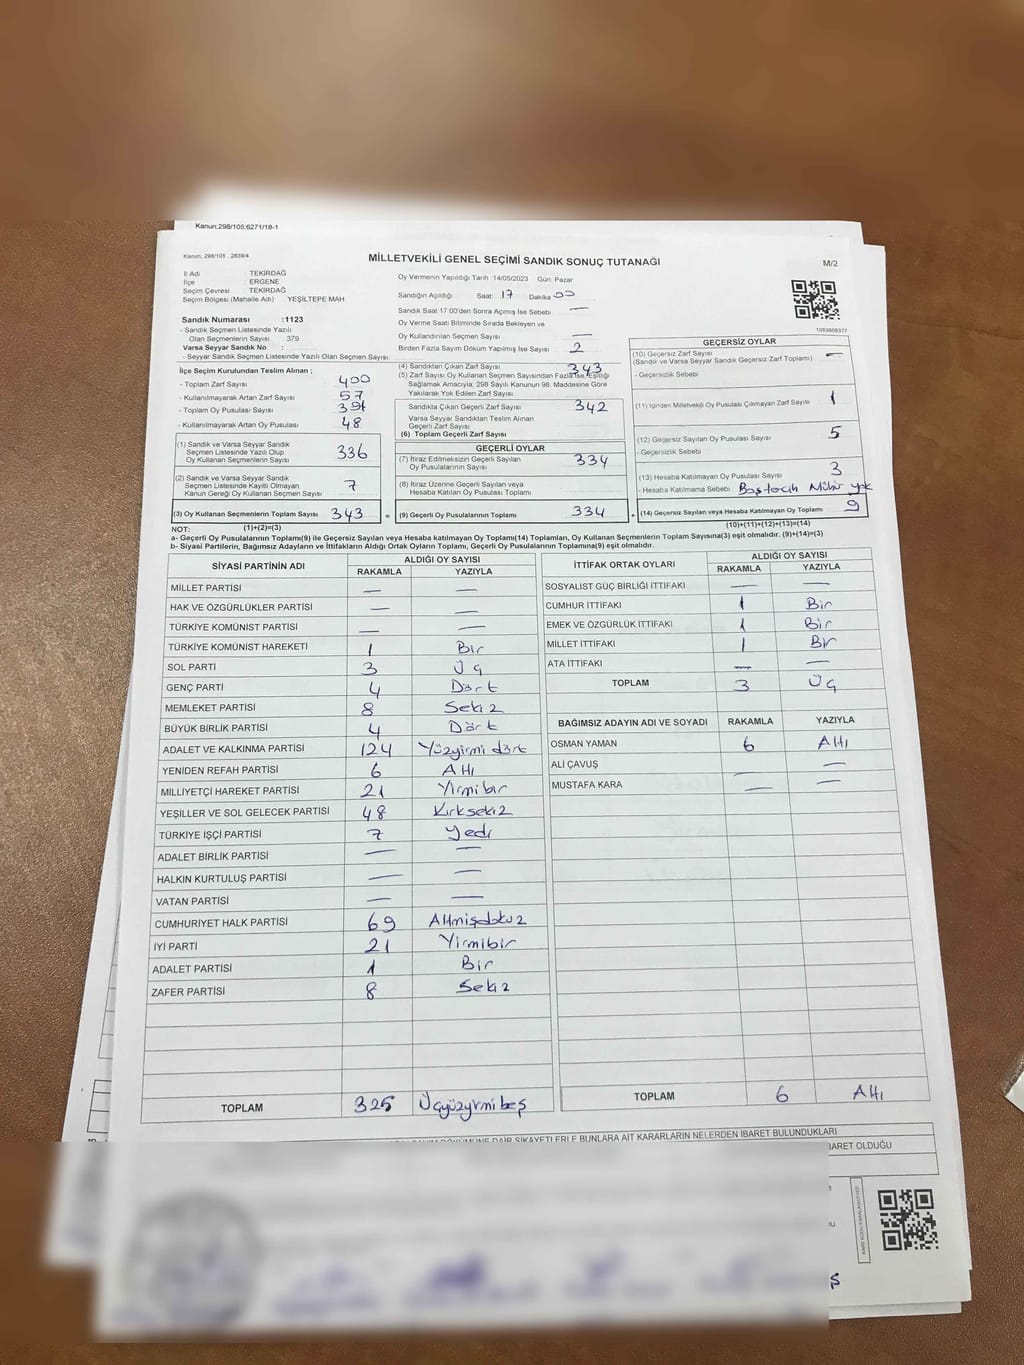 Kanun;298/105.6271/18-1
Kanun; 298/105. . 2839/4
MİLLETVEKİLİ GENEL SEÇİMİ SANDIK SONUÇ TUTANAĞI
M/2
İl Adı TEKİRDAĞ
İlçe ERGENE
Seçim Çevresi TEKİRDAĞ
Seçim Bölgesi (Mahalle Adı) YEŞİLTEPE MAH
Sandık Numarası :1123
- Sandık Seçmen Listesinde Yazılı
Olan Seçmenlerin Sayısı. 379
Varsa Seyyar Sandık No :
- Seyyar Sandık Seçmen Listesinde Yazılı Olan Seçmen Sayısı.
Oy Vermenin Yapıldığı Tarih :14/05/2023 Gün: Pazar
Sandığın Açıldığı Saat: 17 Dakika 00
Sandık Saat 17.00'den Sonra Açılmış İse Sebebi —
Oy Verme Saati Bitiminde Sırada Bekleyen ve
Oy Kullandırılan Seçmen Sayısı —
Birden Fazla Sayım Döküm Yapılmış İse Sayısı 2
1083608377
İlçe Seçim Kurulundan Teslim Alınan ;
- Toplam Zarf Sayısı 400
- Kullanılmayarak Artan Zarf Sayısı 57
- Toplam Oy Pusulası Sayısı 391
- Kullanılmayarak Artan Oy Pusulası 48
(1) Sandık ve Varsa Seyyar Sandık
Seçmen Listesinde Yazılı Olup
Oy Kullanan Seçmenlerin Sayısı 336
(2) Sandık ve Varsa Seyyar Sandık
Seçmen Listesinde Kayıtlı Olmayan
Kanun Gereği Oy Kullanan Seçmen Sayısı 7
(3) Oy Kullanan Seçmenlerin Toplam Sayısı 343 =
(4) Sandıktan Çıkan Zarf Sayısı 343
(5) Zarf Sayısı Oy Kullanan Seçmen Sayısından Fazla İse, Eşitliği
Sağlamak Amacıyla; 298 Sayılı Kanunun 98. Maddesine Göre
Yakılarak Yok Edilen Zarf Sayısı
Sandıkta Çıkan Geçerli Zarf Sayısı 342
Varsa Seyyar Sandıktan Teslim Alınan
Geçerli Zarf Sayısı
(6) Toplam Geçerli Zarf Sayısı
GEÇERLİ OYLAR
(7) İtiraz Edilmeksizin Geçerli Sayılan
Oy Pusulalarının Sayısı 334
(8) İtiraz Üzerine Geçerli Sayılan veya
Hesaba Katılan Oy Pusulası Toplamı
(9) Geçerli Oy Pusulalarının Toplamı 334 +
GEÇERSİZ OYLAR
(10) Geçersiz Zarf Sayısı —
(Sandık ve Varsa Seyyar Sandık Geçersiz Zarf Toplamı)
- Geçersizlik Sebebi
(11) İçinden Milletvekili Oy Pusulası Çıkmayan Zarf Sayısı 1
(12) Geçersiz Sayılan Oy Pusulası Sayısı 5
- Geçersizlik Sebebi
(13) Hesaba Katılmayan Oy Pusulası Sayısı 3
- Hesaba Katılmama Sebebi Mühür yok
(14) Geçersiz Sayılan veya Hesaba Katılmayan Oy Toplamı 9
NOT: (1)+(2)=(3) (10)+(11)+(12)+(13)=(14)
a- Geçerli Oy Pusulaları Toplamı(9) ile Geçersiz Sayılan veya Hesaba katılmayan Oy Toplamı(14) Toplamları, Oy Kullanan Seçmenlerin Toplam Sayısına(3) eşit olmalıdır. (9)+(14)=(3)
b- Siyasi Partilerin, Bağımsız Adayların ve İttifakların Aldığı Ortak Oyların Toplamı, Geçerli Oy Pusulalarının Toplamına(9) eşit olmalıdır.
SİYASİ PARTİNİN ADI ALDIĞI OY SAYISI
RAKAMLA YAZIYLA
MİLLET PARTİSİ — —
HAK VE ÖZGÜRLÜKLER PARTİSİ — —
TÜRKİYE KOMÜNİST PARTİSİ — —
TÜRKİYE KOMÜNİST HAREKETİ 1 Bir
SOL PARTİ 3 Üç
GENÇ PARTİ 4 Dört
MEMLEKET PARTİSİ 8 Sekiz
BÜYÜK BİRLİK PARTİSİ 4 Dört
ADALET VE KALKINMA PARTİSİ 124 Yüzyirmi dört
YENİDEN REFAH PARTİSİ 6 Altı
MİLLİYETÇİ HAREKET PARTİSİ 21 Yirmibir
YEŞİLLER VE SOL GELECEK PARTİSİ 48 Kırksekiz
TÜRKİYE İŞÇİ PARTİSİ 7 Yedi
ADALET BİRLİK PARTİSİ — —
HALKIN KURTULUŞ PARTİSİ — —
VATAN PARTİSİ — —
CUMHURİYET HALK PARTİSİ 69 Altmışdokuz
İYİ PARTİ 21 Yirmibir
ADALET PARTİSİ 1 Bir
ZAFER PARTİSİ 8 Sekiz
TOPLAM 325 Üçyüzyirmibeş
İTTİFAK ORTAK OYLARI ALDIĞI OY SAYISI
RAKAMLA YAZIYLA
SOSYALİST GÜÇ BİRLİĞİ İTTİFAKI — —
CUMHUR İTTİFAKI 1 Bir
EMEK VE ÖZGÜRLÜK İTTİFAKI 1 Bir
MİLLET İTTİFAKI 1 Bir
ATA İTTİFAKI — —
TOPLAM 3 Üç
BAĞIMSIZ ADAYIN ADI VE SOYADI RAKAMLA YAZIYLA
OSMAN YAMAN 6 Altı
ALİ ÇAVUŞ — —
MUSTAFA KARA — —
TOPLAM 6 Altı
DÖKÜMÜNE DAİR ŞİKAYETLERLE BUNLARA AİT KARARLARIN NELERDEN İBARET BULUNDUKLARI
İBARET OLDUĞU